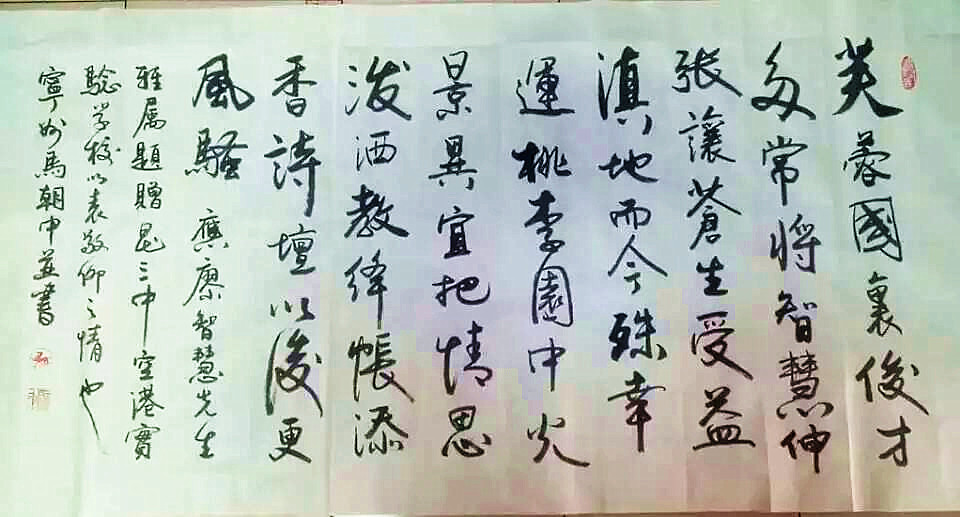 芙蓉國裏俊才
多常將智慧伸
張讓蒼生受益
滇地而今殊幸
運桃李園中光
景異宜把情思
潑洒教絳帳添
香詩壇以後更
風騷 應廖智慧先生
雅屬題贈昆三中空港實
驗学校以表敬仰之情也
寧州馬朝中並書